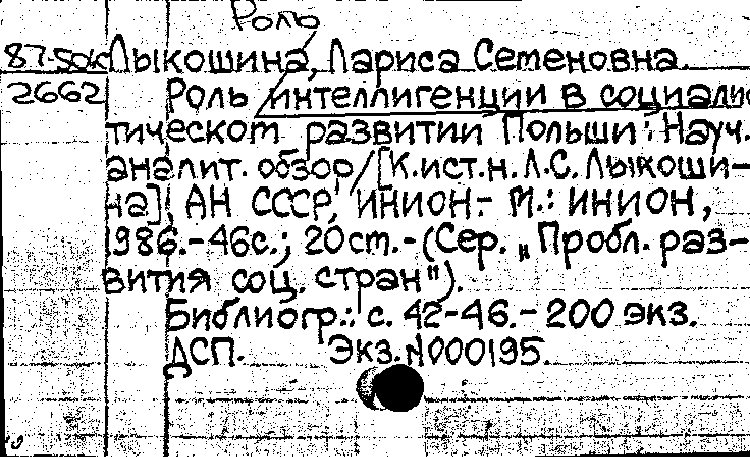 Роль
87-50к Лыкошина, Лариса Семеновна.
2662 Роль интеллигенции в социалис
тическом развитии Польши: Науч.
аналит. обзор/[К.ист.н. Л.С. Лыкоши-
на]; АН СССР, ИНИОН.- М.: ИНИОН,
1986.-46с.; 20см.-(Сер. „Пробл. раз-
вития соц. стран").
Библиогр.: с. 42-46.- 200 экз.
ДСП. Экз.N000195.